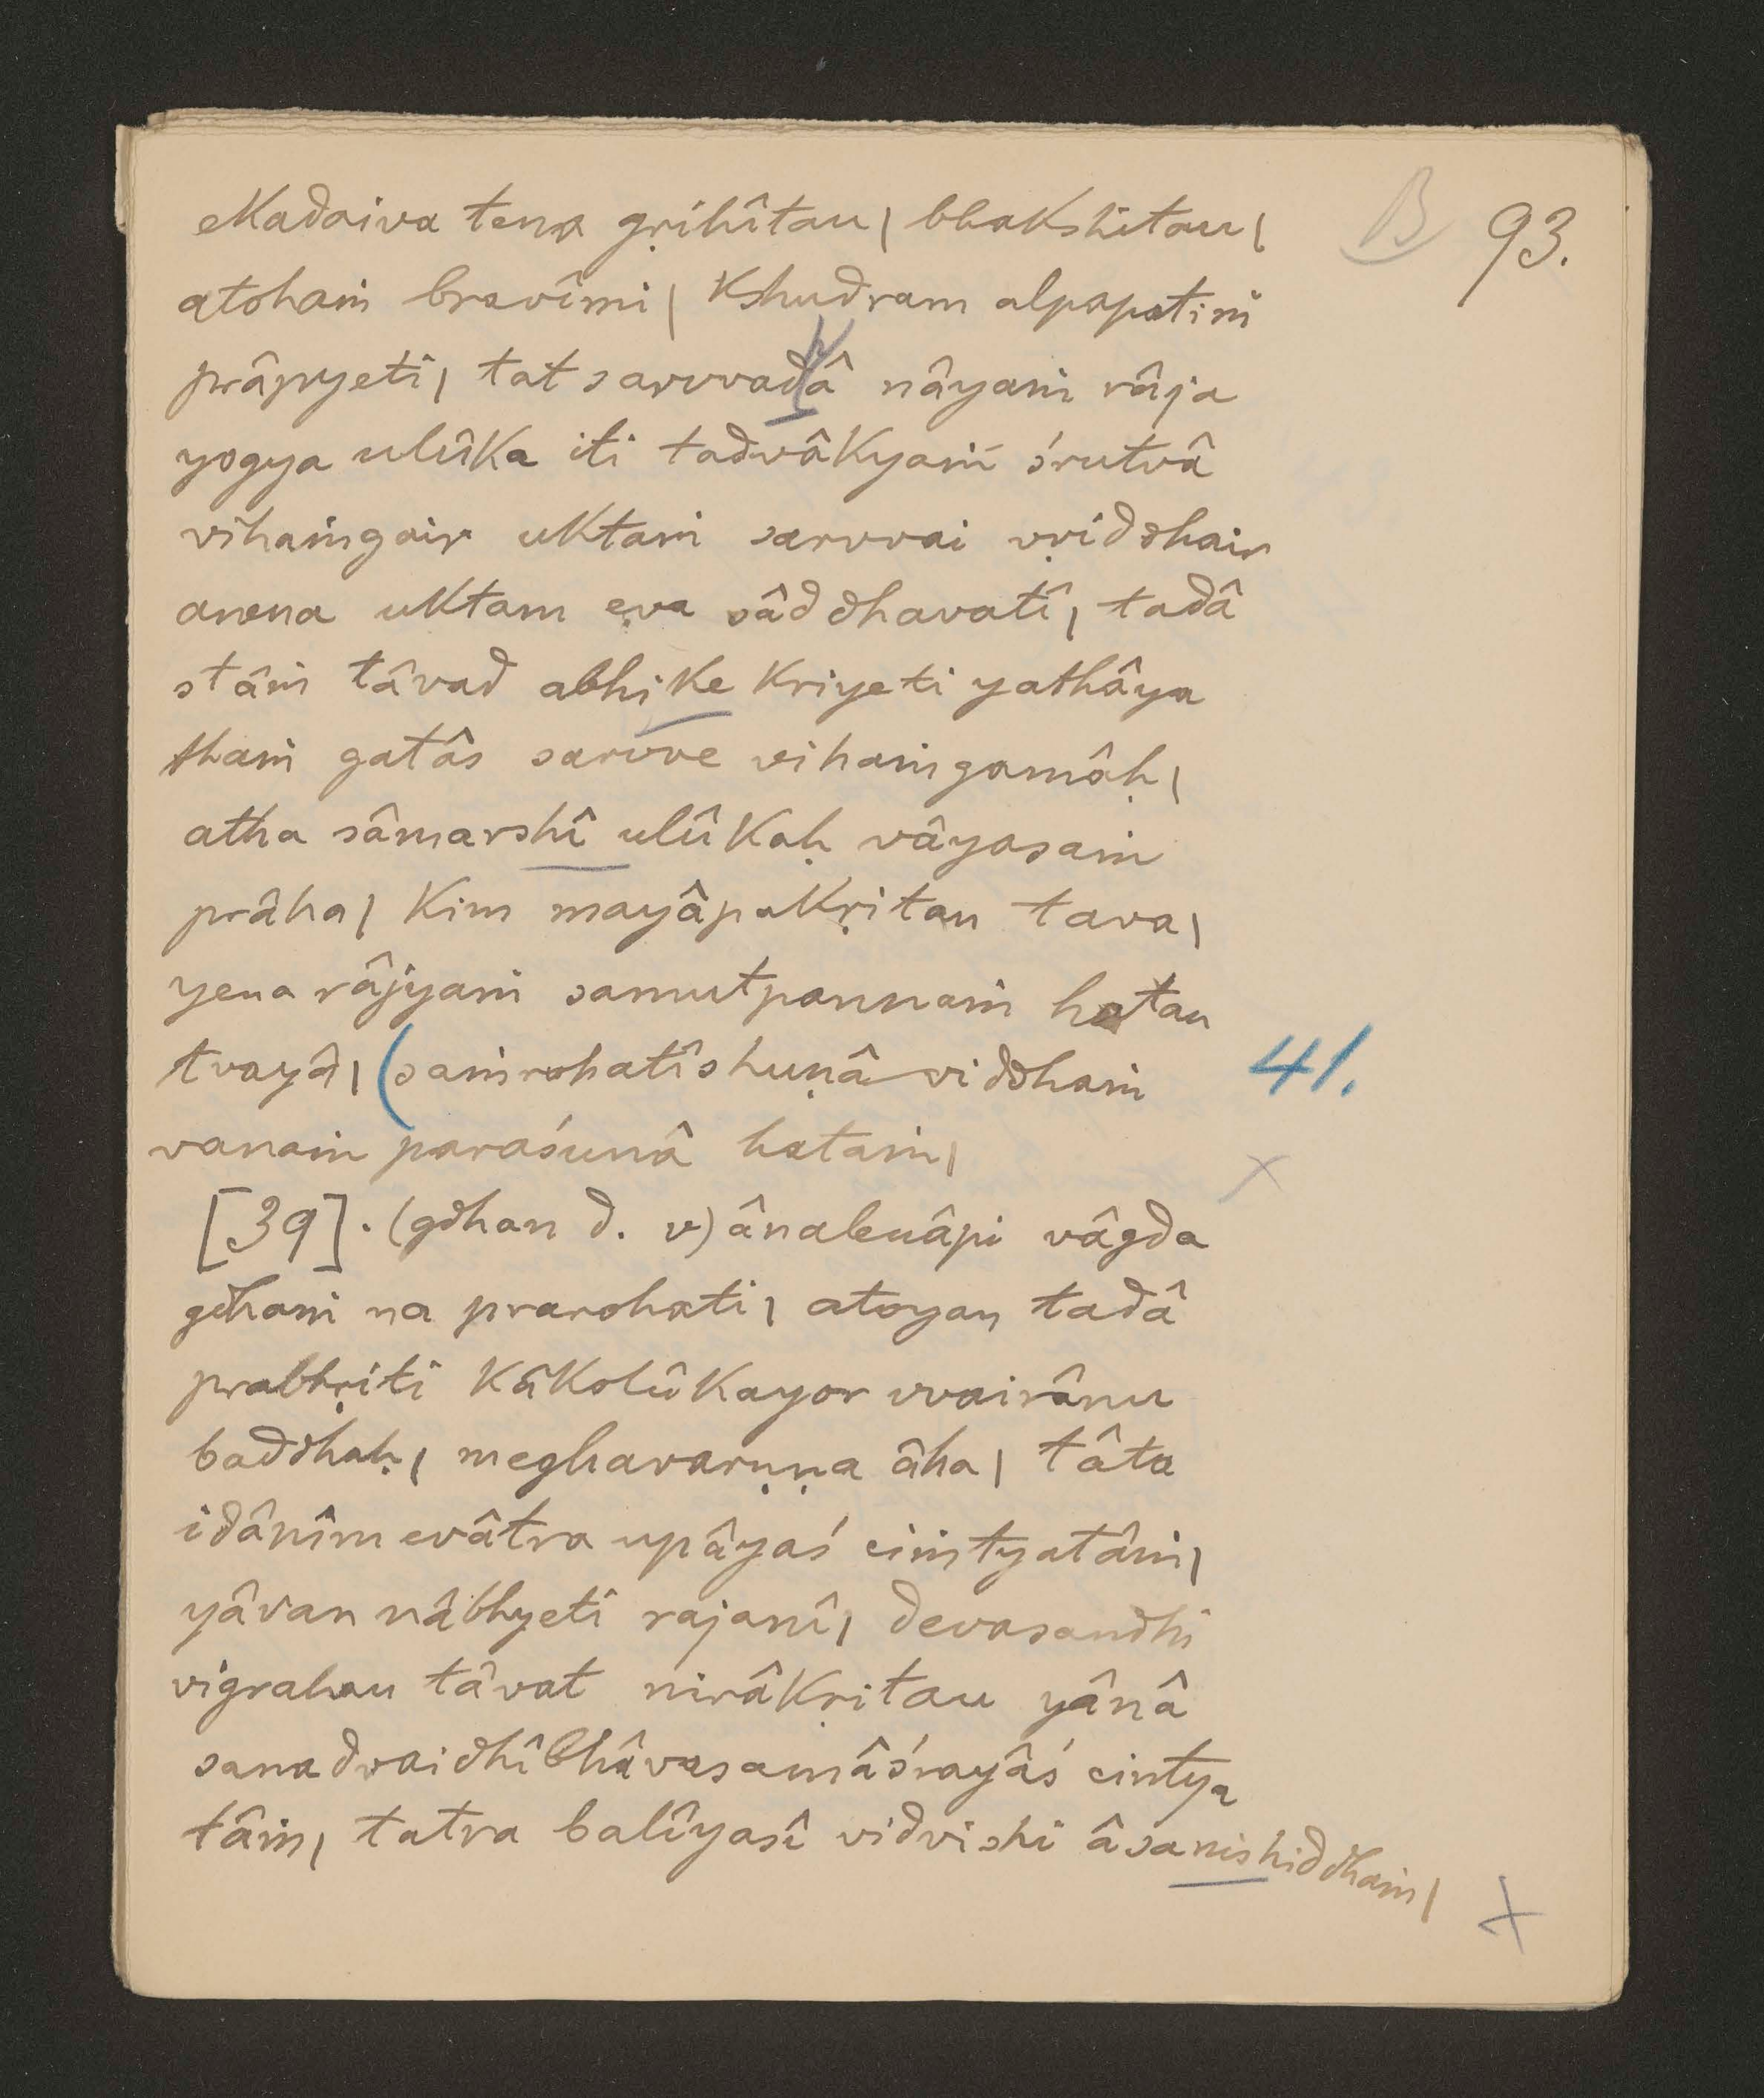 B 93.
ekadaiva tena gṛihîtau| bhakshitau|
atohaṁ bravîmi| kshudram alpapatiṁ
prâpyeti| tat sarvvadâ nâyaṁ râja
yogya ulûka iti tadvâkyaṁ śrutvâ
vihaṁgair uktaṁ sarvvai vṛiddhair
anena uktam eva sâddhavatî| tadâ
stâṁ tâvad abhike kriyeti yathâya
thaṁ gatâs sarvve vihaṁgamâḥ|
atha sâmarshî ulûkaḥ vâyasaṁ
prâha| kim mayâpakṛitau tava|
yena râjyaṁ samutpannaṁ hatau
tvayâ| (saṁrohatîshuṇâ viddhaṁ 41.
vanaṁ paraśunâ hataṁ|
[39]. (gdhan d. v) ânalenâpi vâgda
gdhaṁ na prarohati| atoyan tadâ
prabhṛiti kâkolûkayor vvairânu
baddhaḥ| meghavarṇṇa âha| tâta
idânîm evâtra upâyaś ciṁtyatâṁ|
yâvan nâbhyeti rajanî| devasandhi
vigrahau tâvat nirâkṛitau yânâ
sanadvaidhîbhâvasamâśrayâś cintya
tâṁ| tatra balîyasî vidvishi âsanishiddhaṁ|